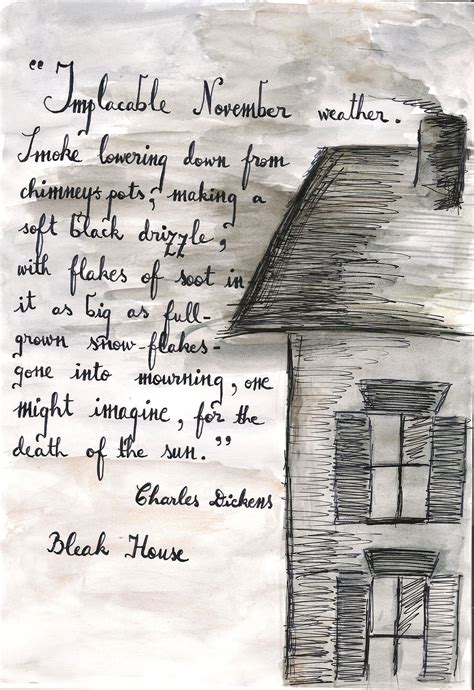 “Implacable November weather.
Smoke lowering down from
chimneys pots, making a
soft black drizzle,
with flakes of soot in
it as big as full-
grown snow-flakes-
gone into mourning, one
might imagine, for the
death of the sun.”
Charles Dickens
Bleak House